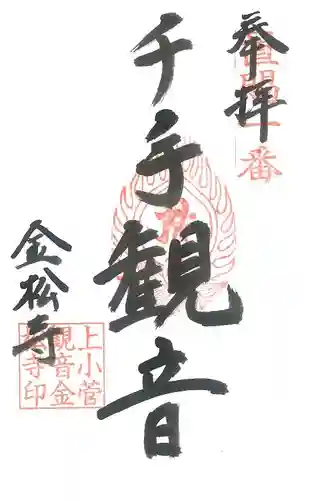 奉拝
千手観音
金松寺
上小菅
観音金
松寺印